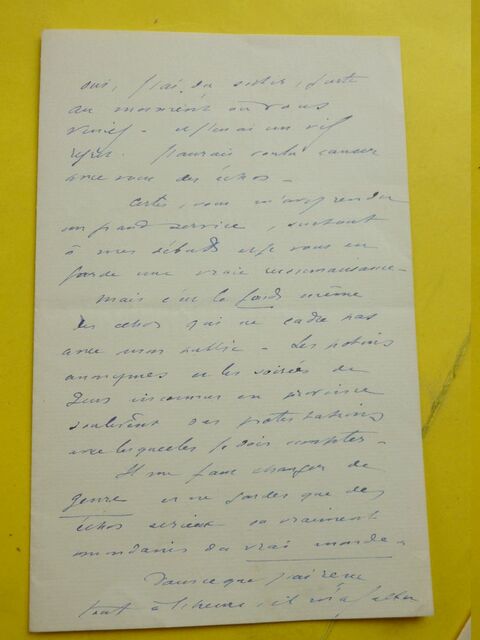 oui, j'ai dû sortir, juste
au moment où vous
veniez - et j'en ai un vif
regret. J'aurais voulu causer
avec vous des échos -
Certes, vous m'avez rendu
un grand service, surtout
à mes débuts et je vous en
garde une vraie reconnaissance -
Mais c'est le fonds même
des échos qui ne cadre pas
avec mon public - Les potins
anonymes et les soirées de
gens inconnus en province
soulèvent des protestations
avec lesquelles je dois compter -
Il me faut changer de
genre et ne garder que des
échos sérieux ou vraiment
mondains du vrai monde -
Dans ce que j'ai reçu
tout à l'heure, il m'a fallu